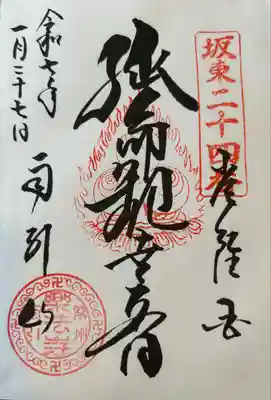 坂東二十四番
常陸国
延命観世音
雨引山
令和七年
一月二十七日